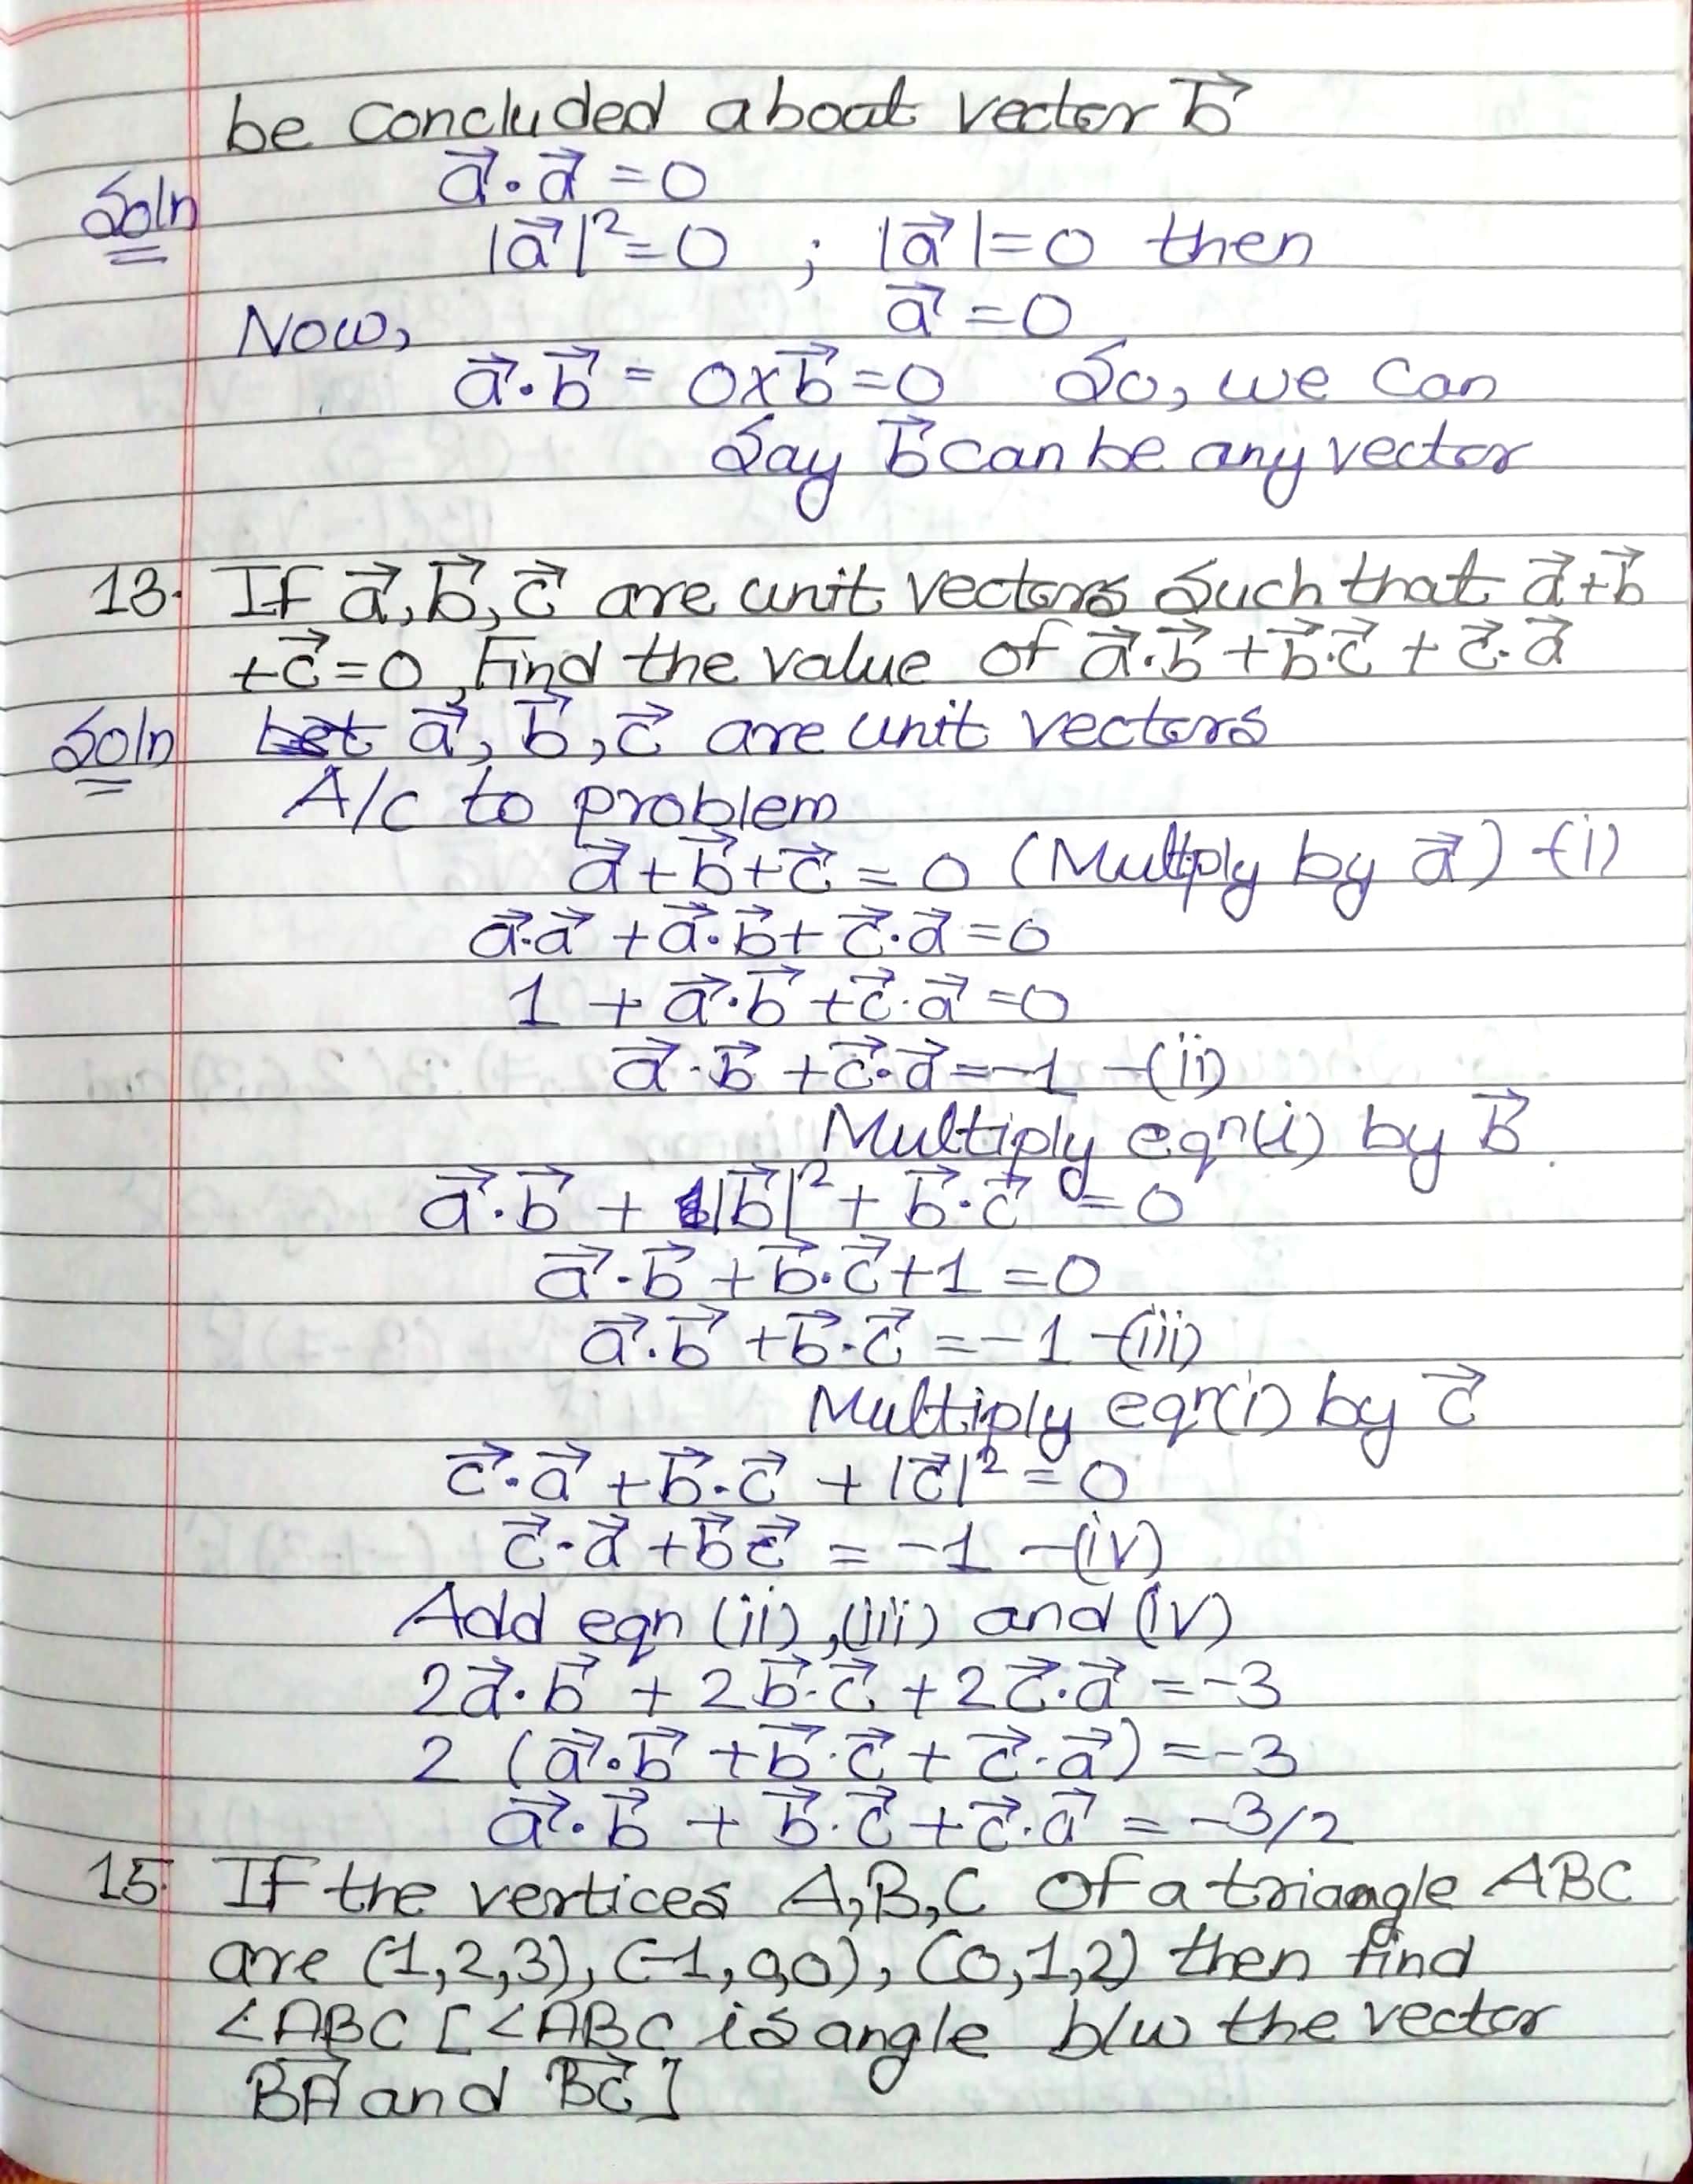 be concluded about vector b⃗
Soln a⃗·a⃗ = 0
|a⃗|² = 0 ; |a⃗| = 0 then
a⃗ = 0
Now,
a⃗·b⃗ = 0×b⃗ = 0 So, we can
Say b⃗ can be any vector
13. If a⃗, b⃗, c⃗ are unit vectors Such that a⃗+b⃗
+c⃗=0, Find the value of a⃗·b⃗ + b⃗·c⃗ + c⃗·a⃗
Soln Let a⃗, b⃗, c⃗ are unit vectors
A/c to problem
a⃗+b⃗+c⃗ = 0 (Multiply by a⃗) -(i)
a⃗·a⃗ + a⃗·b⃗ + c⃗·a⃗ = 0
1 + a⃗·b⃗ + c⃗·a⃗ = 0
a⃗·b⃗ + c⃗·a⃗ = -1 -(ii)
Multiply eqn(i) by b⃗
a⃗·b⃗ + |b⃗|² + b⃗·c⃗ = 0
a⃗·b⃗ + b⃗·c⃗ + 1 = 0
a⃗·b⃗ + b⃗·c⃗ = -1 -(iii)
Multiply eqn(i) by c⃗
c⃗·a⃗ + b⃗·c⃗ + |c⃗|² = 0
c⃗·a⃗ + b⃗c⃗ = -1 -(iv)
Add eqn (ii), (iii) and (iv)
2a⃗·b⃗ + 2b⃗·c⃗ + 2c⃗·a⃗ = -3
2 (a⃗·b⃗ + b⃗·c⃗ + c⃗·a⃗) = -3
a⃗·b⃗ + b⃗·c⃗ + c⃗·a⃗ = -3/2
15. If the vertices A,B,C of a triangle ABC
are (1,2,3), (-1,0,0), (0,1,2) then find
∠ABC [∠ABC is angle b/w the vector
BA⃗ and BC⃗]